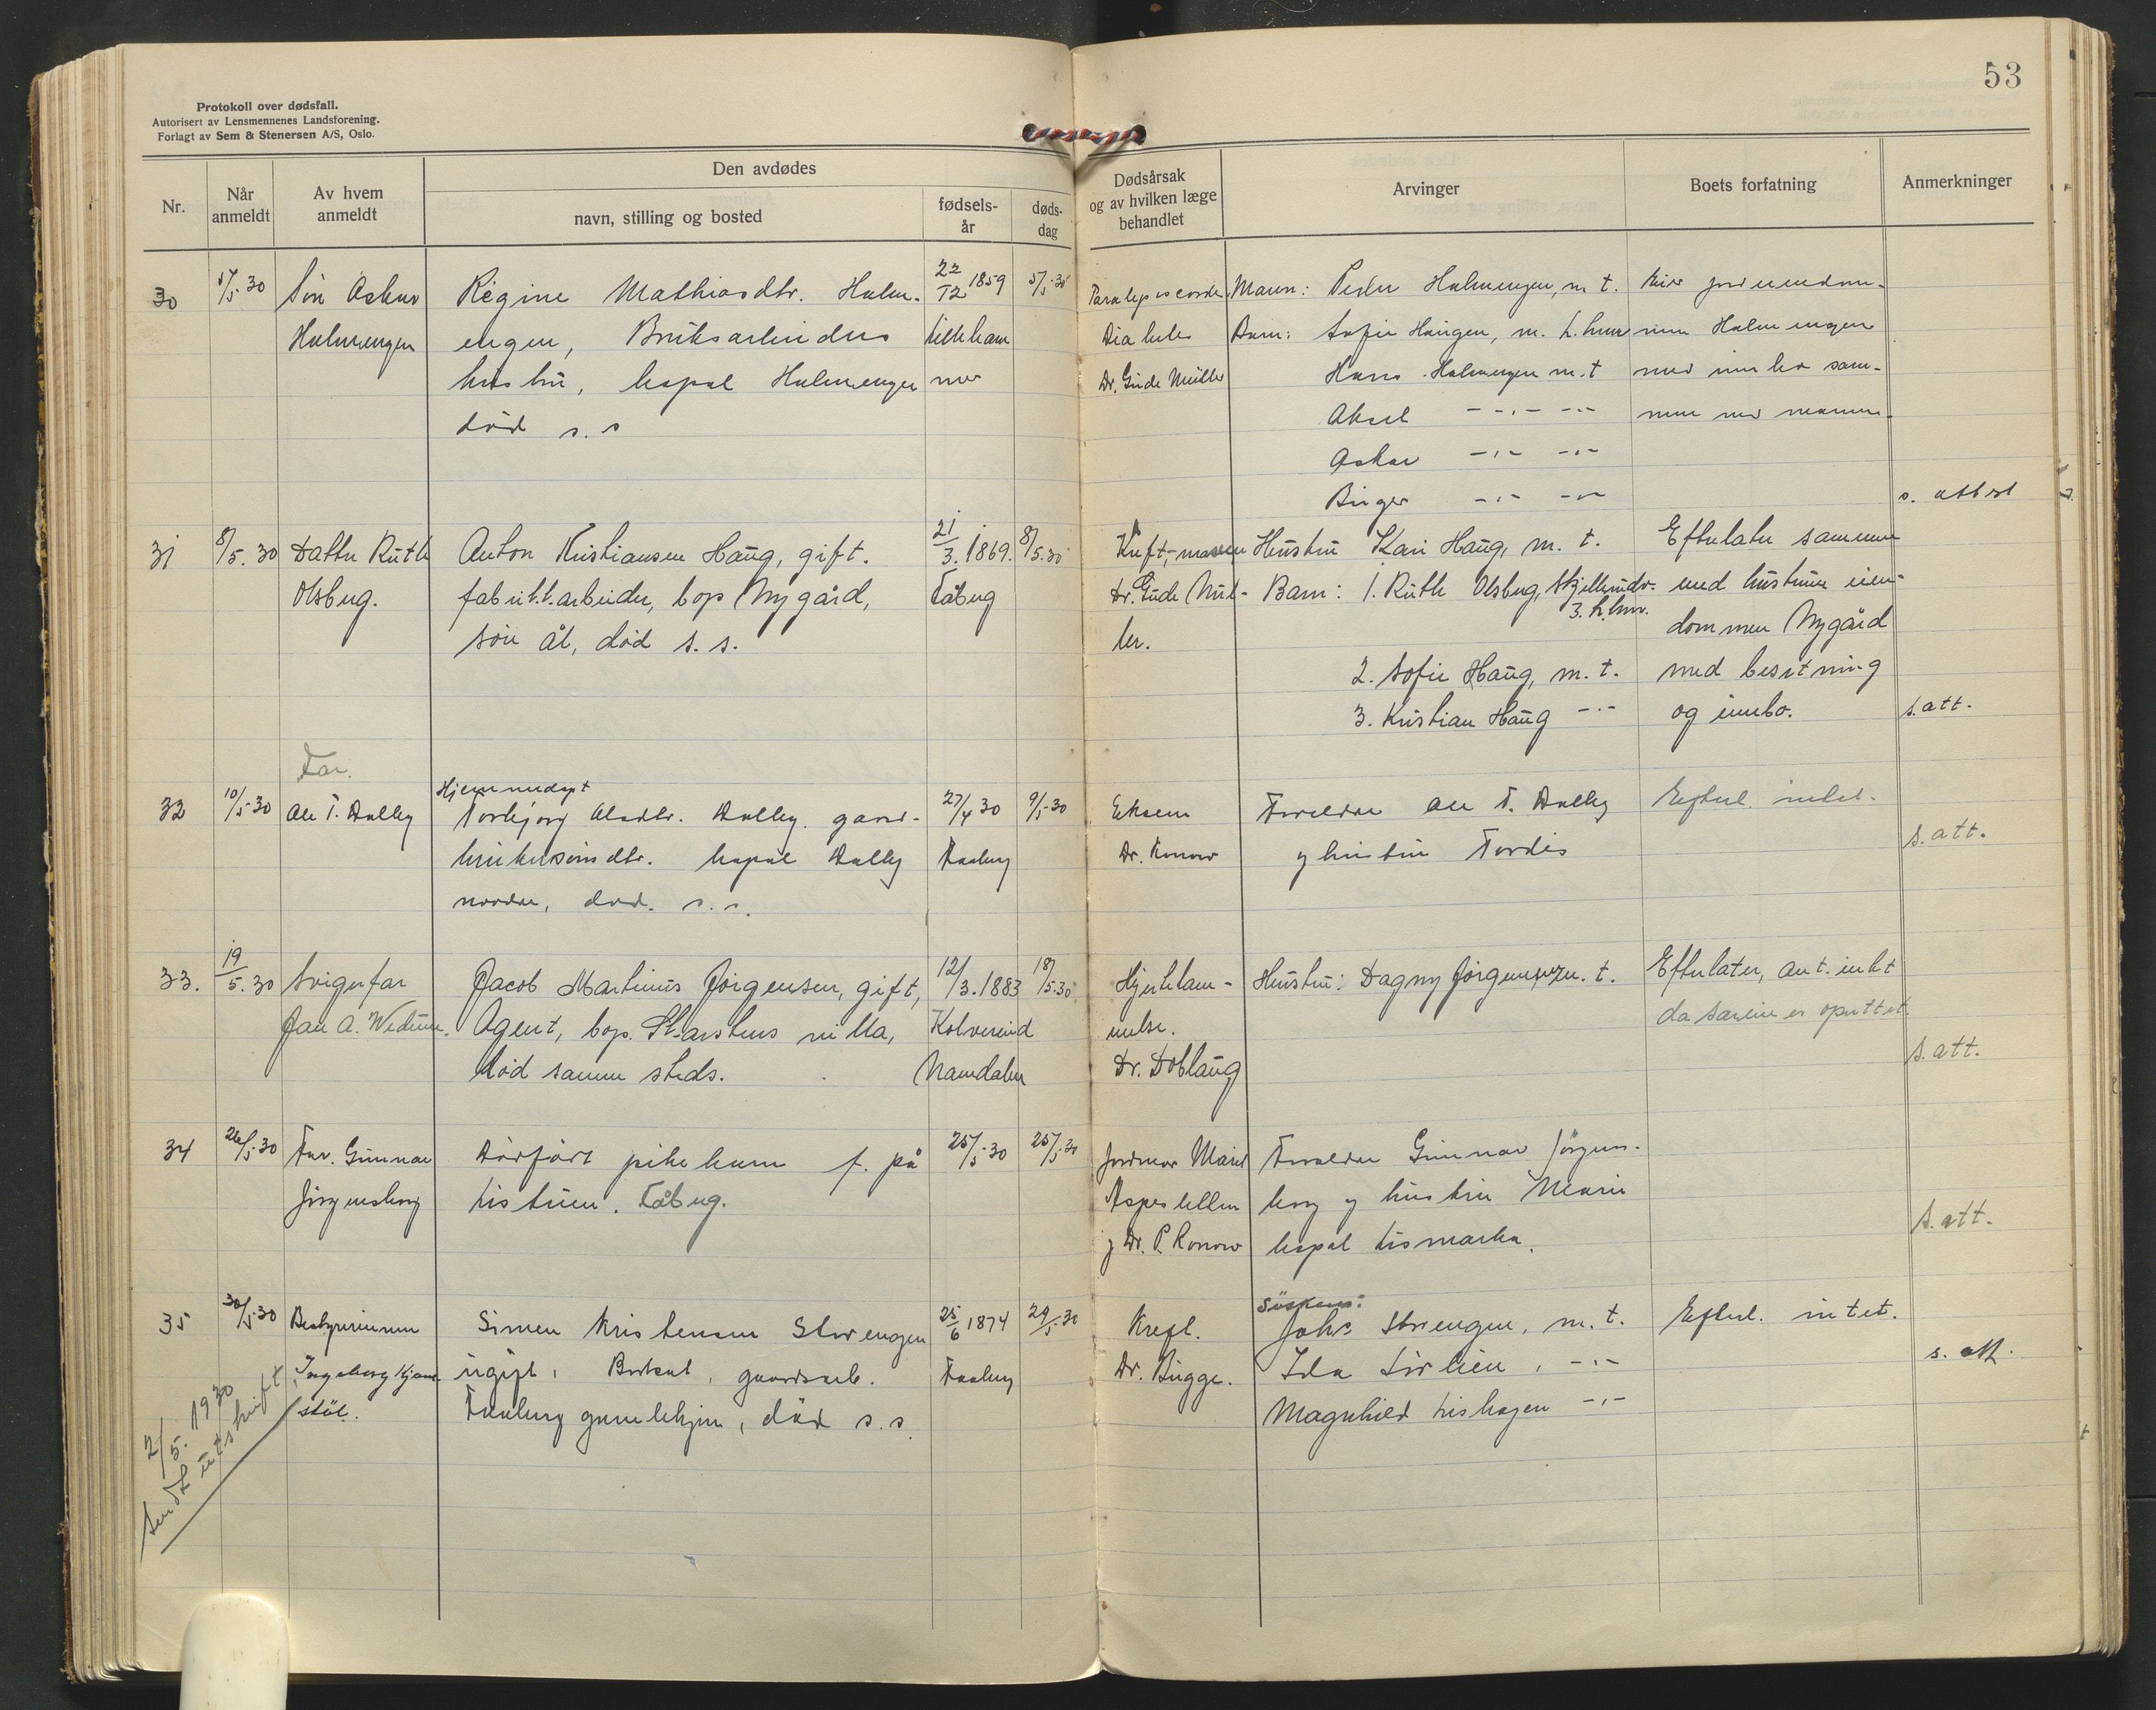 53
Protokoll over dødsfall.
Autorisert av Lensmennenes Landsforening.
Forlagt av Sem & Stenersen A/S, Oslo.
Nr.
Når anmeldt
Av hvem anmeldt
Den avdødes
navn, stilling og bosted
fødsels-år
døds-dag
Dødsårsak og av hvilken læge behandlet
Arvinger
Boets forfatning
Anmerkninger
30
5/5.30
Sön Oskar
Holmengen
Regine Mathiasdtr. Holm-
engen, Bruksarbeiders
hustru, bopæl Holmengen
död s.s
22/12 1859
Lilleham
mer
5/5.30
Diabetes
Dr. Gude Müller
Mann: Peder Holmengen, m. t.
Barn: Sofie Haugen, m. h. hmr
Hans Holmengen m.t
Aksel -"- -"-
Oskar -"- -"-
Birger -"- -"-
Eier jordeiendom-
men Holmengen
med innbo sam-
men med mannen
s. attest
31
8/5.30
Datter Ruth
Olsberg.
Anton Kristiansen Haug, gift.
fabrikkarbeider, bop Nygård,
sön ål, död s.s.
21/3.1869.
Fåberg
8/5.30
Kreft, maven
Dr. Gude Mül-
ler.
Hustru Kari Haug, m. t.
Barn: 1. Ruth Olsberg,
3. h.hmr.
2. Sofie Haug, m. t.
3. Kristian Haug -"-
Efterlater sammen
med hustruen eien-
dommen Nygård
med besetning
og innbo.
s. att.
Far.
32
10/5.30
Ole T. Dalby
Hjemmedøpt
Torbjørg Olsdtr. Dalby. gard-
brukersøns dtr. bopæl Dalby
nordre, død. s.s.
27/4 30
Faaberg
9/5.30
Eksem
Dr. Konow
Foreldre Ole T. Dalby
og hustru Tordis
Efterl. intet.
s. att.
33.
19/5.30
Svigerfar
Jan A. Wedum.
Jacob Martinus Jörgensen, gift,
Agent, bop. villa,
död samme steds.
12/3.1883
Kolvereid
Namdalen
18/5.30
Hjertelam-
melse.
Dr. Doblaug
Hustru: Dagny Jörgensen m. t.
Efterlater, ant. intet
s. att.
34
26/5.30
Far. Gunnar
Jörgensborg
Dödfödt pikebarn f. på
Fåberg.
25/5.30
25/5.30
Jordmor Marit
og Dr. P. Konow
Foreldre Gunnar Jörgens-
borg og hustru Marie
bopæl Lismarka.
s. att.
35
30/5.30
Bestyrerinnen
Ingeborg
Simen Kristensen Storengen
ugift, Bosat, gaardsarb.
Faaberg gamlehjem, död s.s.
25/6 1874
Faaberg
29/5.30
Kreft.
Dr. Bugge.
Sösken:
Johs Storengen, m. t.
Ida Lirlien, -"-
Magnhild Lishagen -"-
Efterl. intet.
s. att.
2/5. 1930
Sendt utskrift